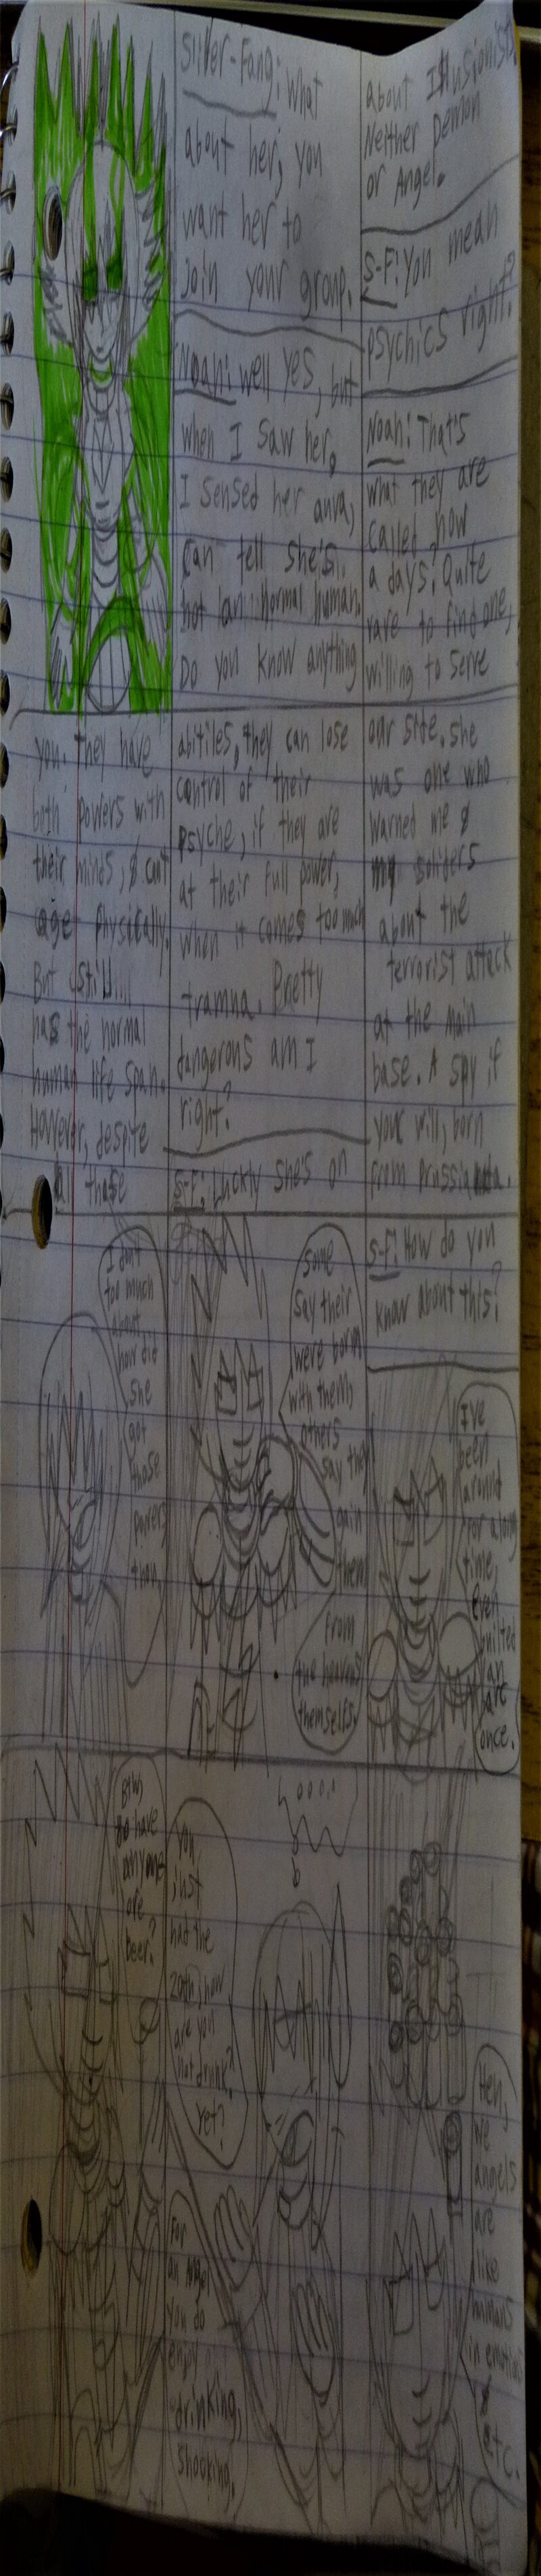 Silver-Fang: What
about her, you
want her to
Join your group.
Noah: well yes, but
when I saw her,
I sensed her aura,
Can tell she's
not an normal human.
Do you know anything
about Illusionists
Neither Demon
or Angel.
S-F: You mean
psychics right?
Noah: That's
what they are
called now
a days? Quite
rare to find one,
willing to serve
you. They have
both powers with
their minds, & can't
age physically.
But still...
has the normal
human life span.
However, despite
all those
abitiles, they can lose
control of their
psyche, if they are
at their full power,
when it comes too much
trauma. Pretty
dangerous am I
right?
S-F: Luckly she's on
our side. she
was one who
warned me &
my soliders
about the
terrorist attack
at the main
base. A spy if
your will, born
from prussia
I don't
too much
about...
how did
she
got
those
powers
than.
Some
say their
were born
with them,
others
say they
gain
them
from
the heavens
themselfs.
S-F: How do you
know about this?
I've
been
around
for a long
time,
Even
builted
an
arc
once.
BTW,
have
anymore
beer?
You
just
had the
20th, how
are you
not drunk
yet?
For
an Angel
you do
enjoy
drinking,
smoking,
Hey,
we
angels
are
like
humans
in emotions
&
etc.